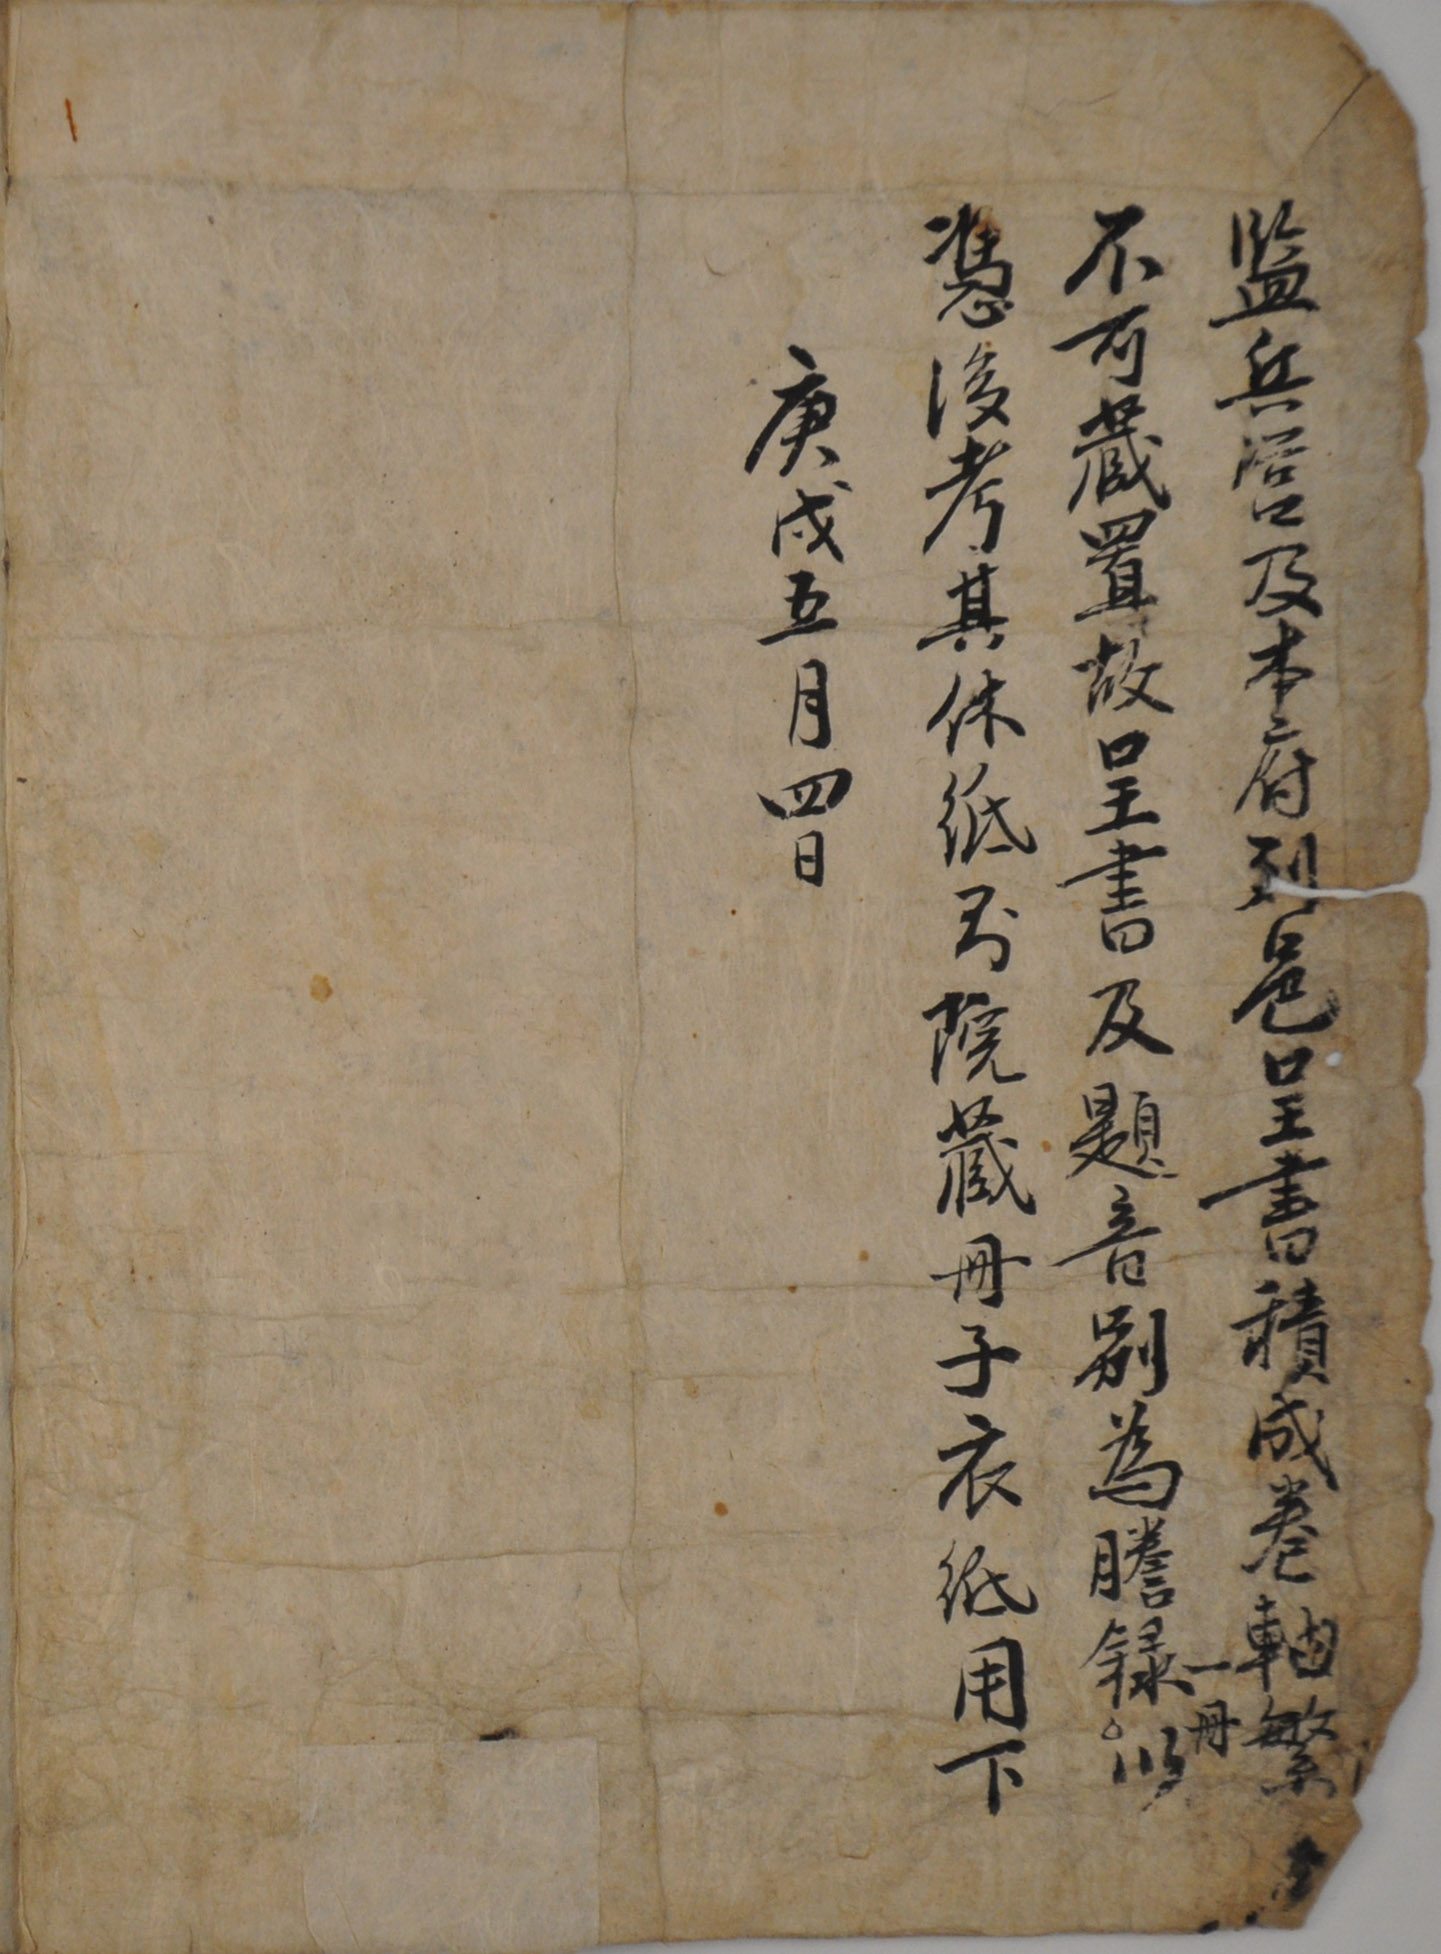 監兵营及本府到邑呈書積成卷軸繁
不可藏置故呈書及題音別為謄録一冊以
憑後考其休紙則院藏冊子衣紙用下
庚戌五月四日